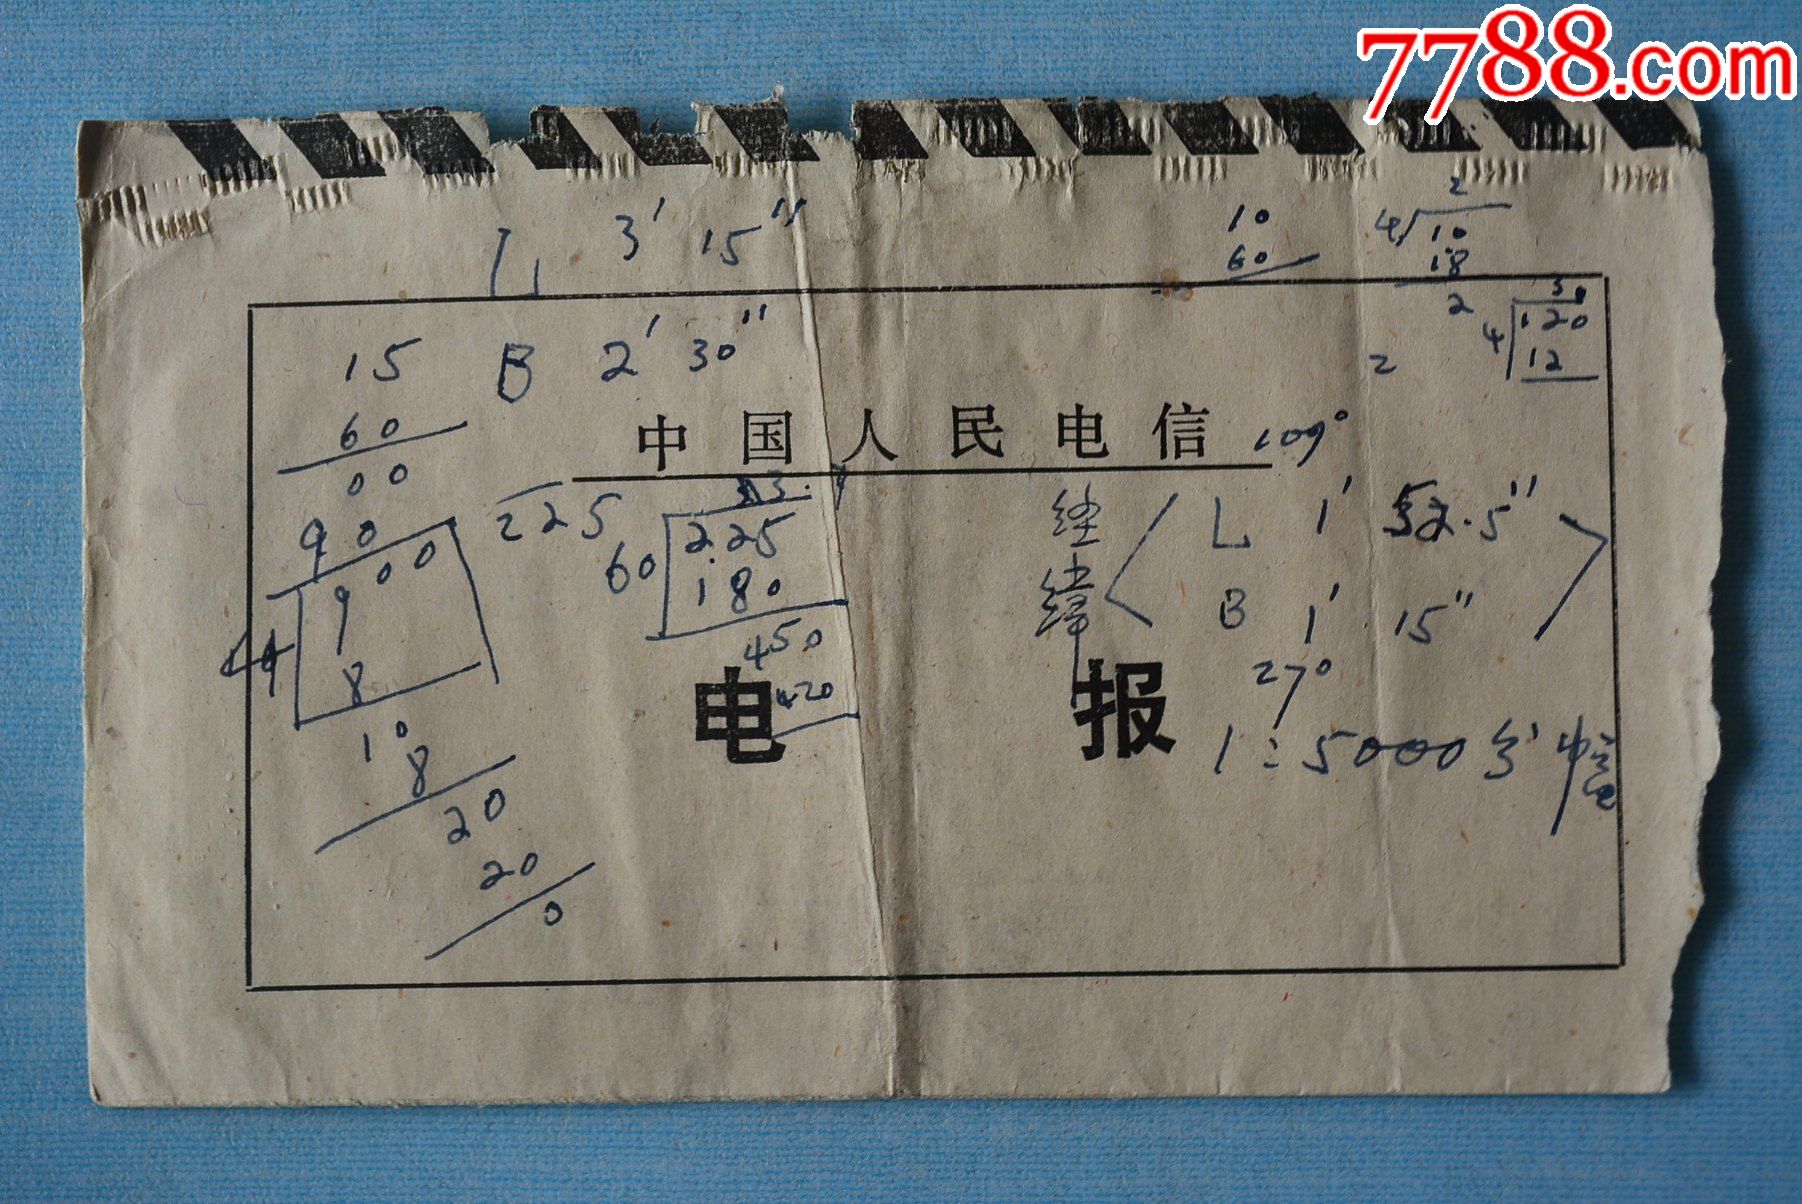 7788.com
L 3′ 15″
10
60
2
4 10
18
2
15 B 2′ 30″
60
00
90
30
4 120
12
2
中国人民电信 109°
225
60 225
180
450
420
经 L 1′ 52.5″
纬 B 1′ 15″
27°
00
9
8
10
8
20
20
0
电报
1:5000